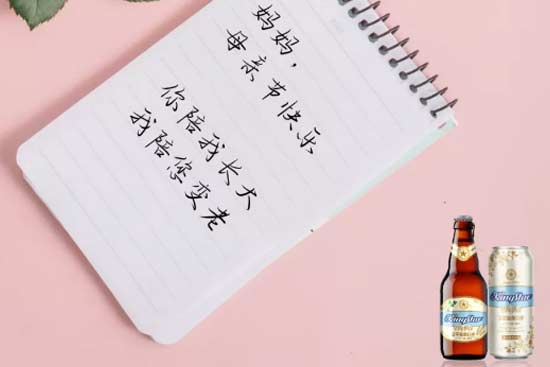 妈妈，
母亲节快乐
你陪我长大
我陪您变老
KingStar
KingStar